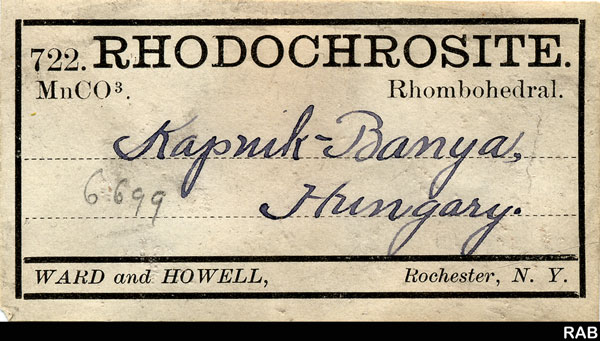 722. RHODOCHROSITE.
MnCO³. Rhombohedral.
Kapnik-Banya,
6699
Hungary.
WARD and HOWELL, Rochester, N. Y.
RAB